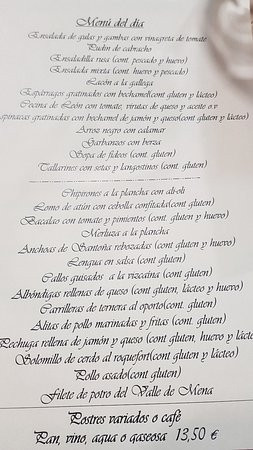 Menú del dia
Ensalada de gulas y gambas con vinagreta de tomate
Pudin de cabracho
Ensaladilla rusa (cont. pescado y huevo)
Ensalada mixta (cont. huevo y pescado)
Lacón a la gallega
Espárragos gratinados con bechamel(cont. gluten y lácteo)
Cecina de León con tomate, virutas de queso y aceite o.v
spinacas gratinadas con bechamel de jamón y queso(cont. gluten y lácteo)
Arroz negro con calamar
Garbanzos con berza
Sopa de fideos (cont. gluten)
Tallarines con setas y langostinos (cont. gluten)
Chipirones a la plancha con ali-oli
Lomo de atún con cebolla confitada(cont. gluten)
Bacalao con tomate y pimientos (cont. gluten y huevo)
Merluza a la plancha
Anchoas de Santoña rebozadas (cont. gluten y huevo)
Lengua en salsa (cont. gluten)
Callos guisados a la vizcaína (cont. gluten)
Albóndigas rellenas de queso (cont. gluten, lácteo y huevo)
Carrilleras de ternera al oporto(cont. gluten)
Alitas de pollo marinadas y fritas (cont. gluten)
Pechuga rellena de jamón y queso (cont. gluten, huevo y lácteo)
Solomillo de cerdo al roquefort(cont. gluten y lácteo)
Pollo asado(cont. gluten)
Filete de potro del Valle de Mena
Postres variados o café
Pan, vino, agua o gaseosa 13,50 €